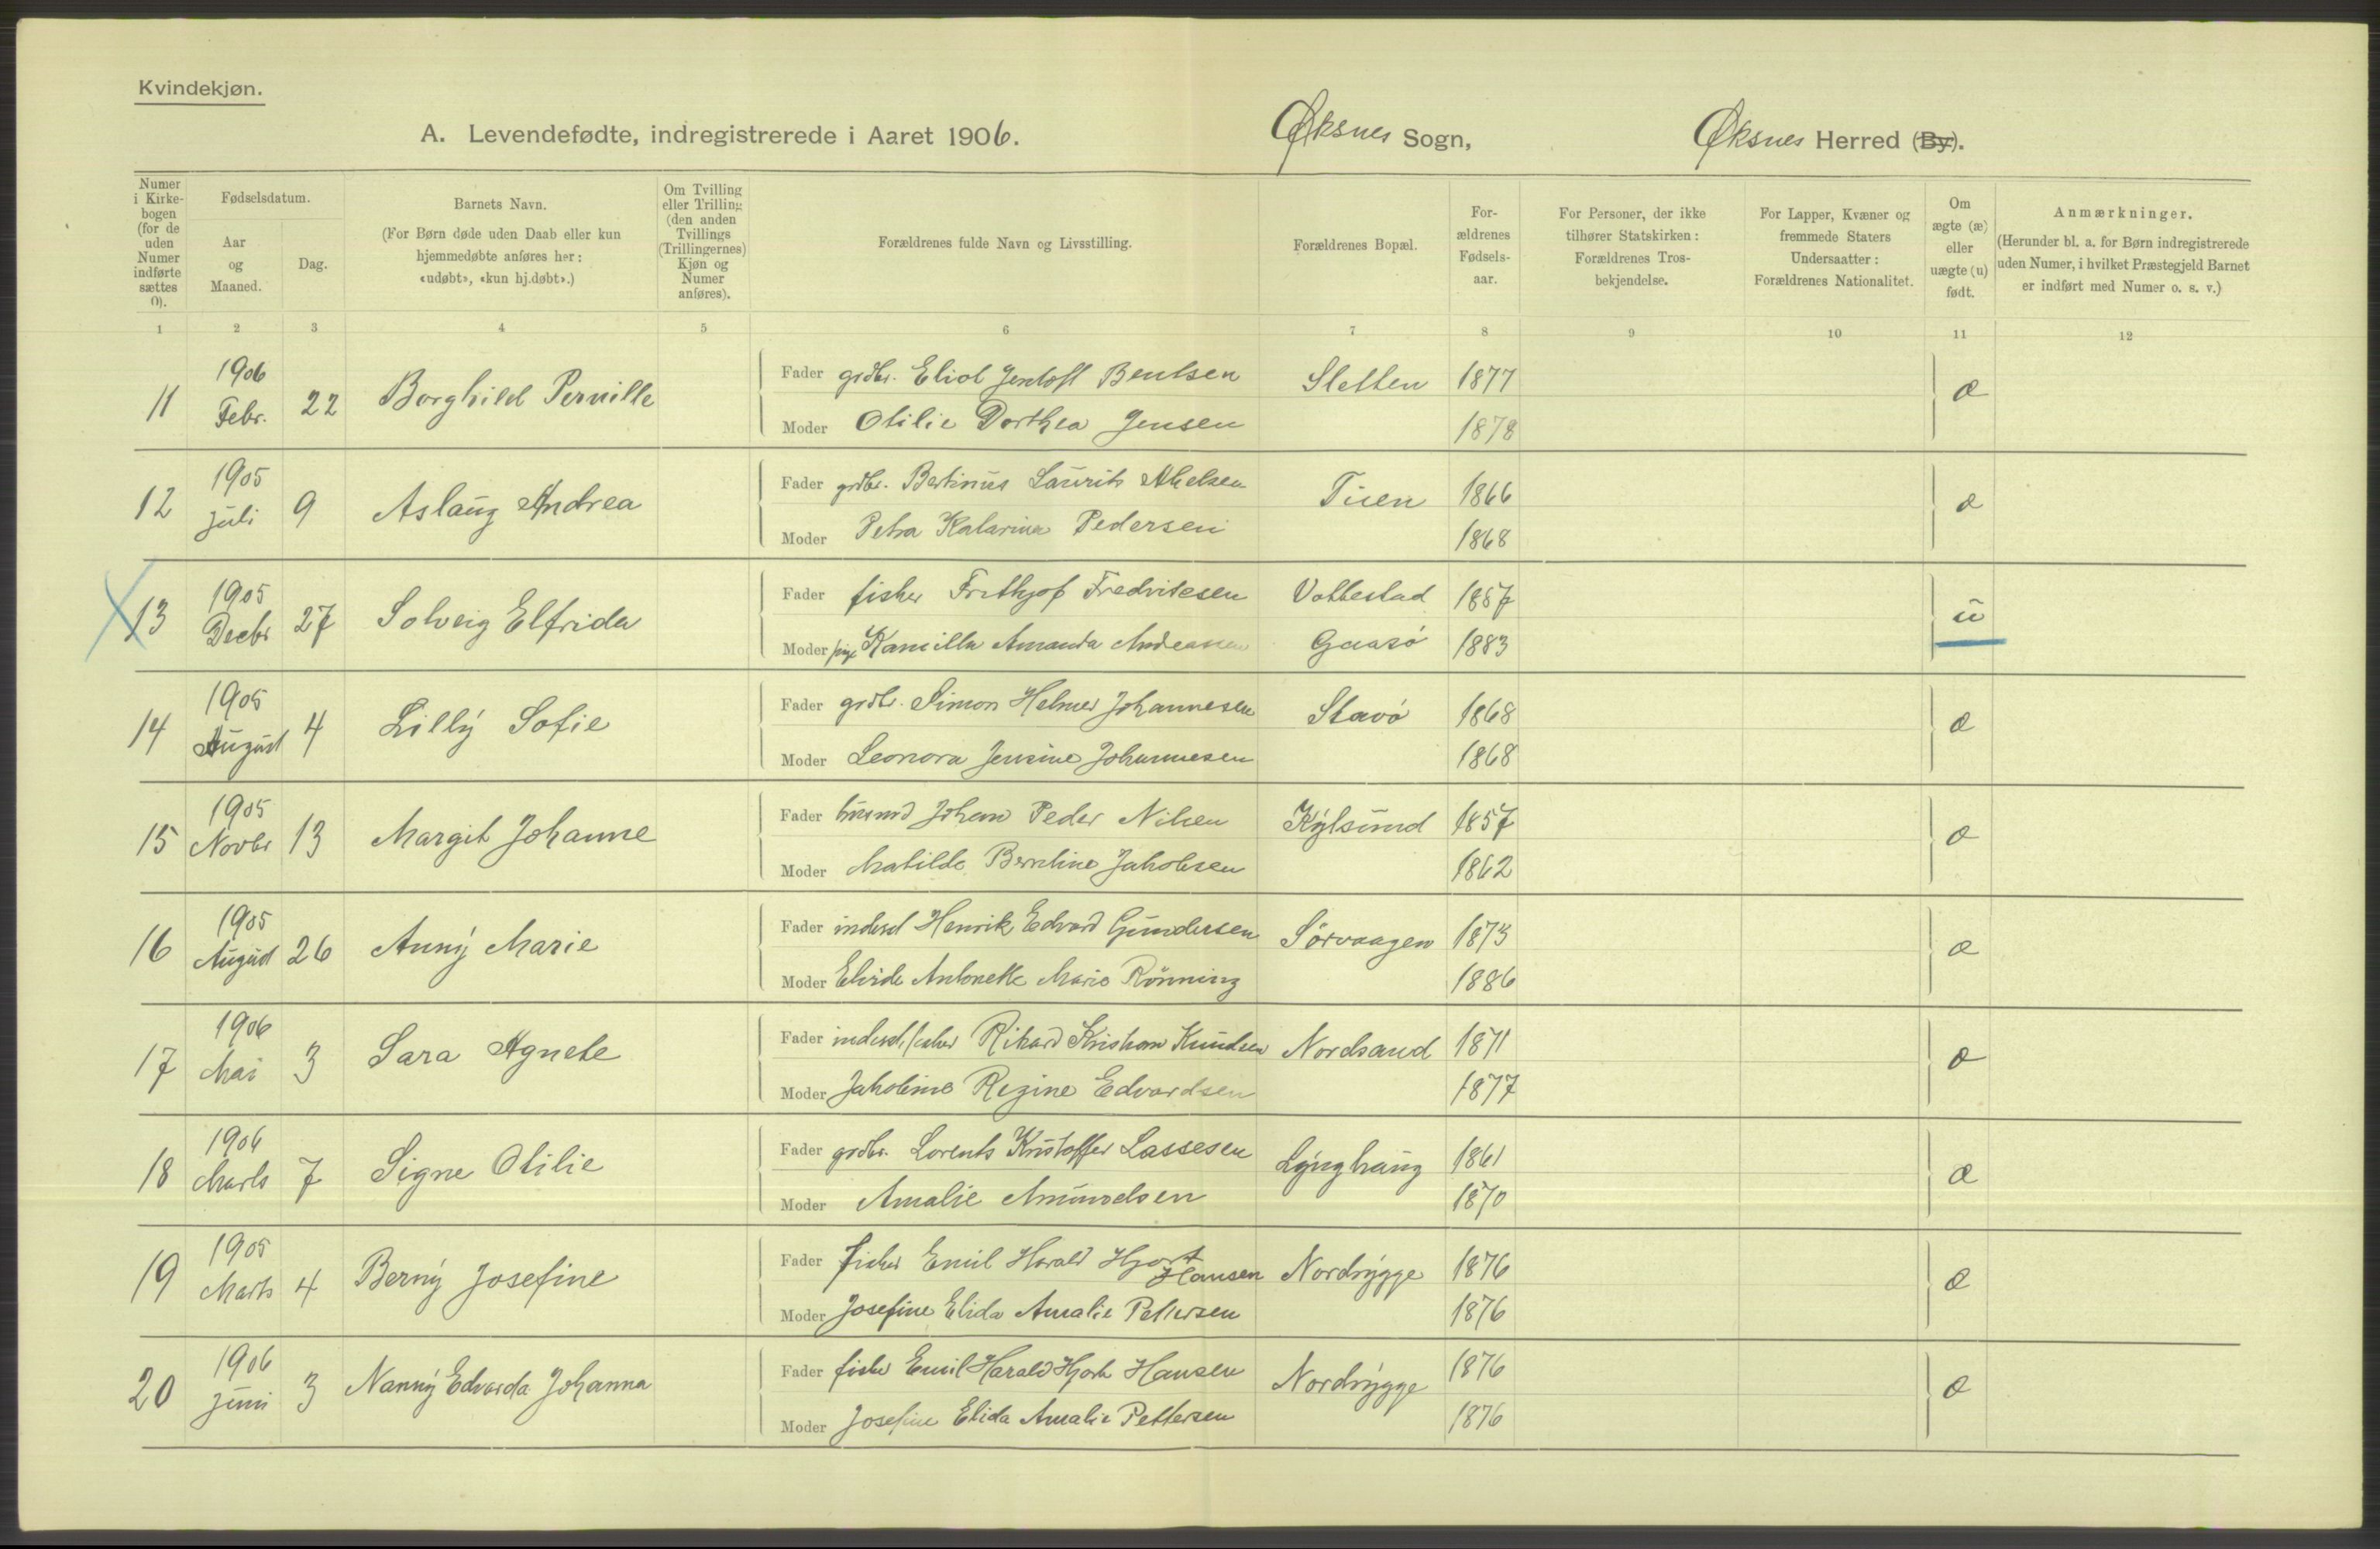 Kvindekjøn.
A. Levendefødte, indregistrerede i Aaret 1906.
Øksnes Sogn,
Øksnes Herred (By).
Numer i Kirke-bogen (for de uden Numer indførte sættes 0).
Fødselsdatum.
Aar og Maaned.
Dag.
Barnets Navn.
(For Børn døde uden Daab eller kun hjemmedøbte anføres her: «udøbt», «kun hj.døbt».)
Om Tvilling eller Trilling (den anden Tvillings (Trillingernes) Kjøn og Numer anføres).
Forældrenes fulde Navn og Livsstilling.
Forældrenes Bopæl.
For-ældrenes Fødsels-aar.
For Personer, der ikke tilhører Statskirken: Forældrenes Tros-bekjendelse.
For Lapper, Kvæner og fremmede Staters Undersaatter: Forældrenes Nationalitet.
Om ægte (æ) eller uægte (u) født.
Anmærkninger.
(Herunder bl. a. for Børn indregistrerede uden Numer, i hvilket Præstegjeld Barnet er indført med Numer o. s. v.)
1 2 3 4 5 6 7 8 9 10 11 12
11 1906 Febr. 22 Borghild Pernille
Fader grdbr. Eliot Jentoft Bentsen Sletten 1877 æ
Moder Otilie Dorthea Jensen 1878
12 1905 Juli 9 Aslaug Andrea
Fader grdbr. Bertinus Laurits Abelsen Tisen 1866 æ
Moder Petra Katarina Pedersen 1868
13 1905 Decbr 27 Solveig Elfrida
Fader fisker Frithjof Fredriksen Vottestad 1857 u
Moder pige Kamilla Amanda Andreassen Gaasø 1883
14 1905 August 4 Lilly Sofie
Fader grdbr. Simon Helmer Johannesen Stavø 1868 æ
Moder Leonora Jensine Johannesen 1868
15 1905 Novbr 13 Margit Johanne
Fader husmd Johan Peder Nilsen 1857 æ
Moder Matilde Berntine Jakobsen 1862
16 1905 August 26 Anny Marie
Fader inderst Henrik Edvard Gundersen Sørvaagen 1873 æ
Moder Antonette Marie Rønning 1886
17 1906 Mai 3 Sara Agnete
Fader inderst, fisker Rikard Kristian Knudsen Nordsand 1871 æ
Moder Jakobine Regine Edvardsen 1877
18 1906 Marts 7 Signe Otilie
Fader grdbr. Lorents Kristoffer Lassesen Lynghaug 1861 æ
Moder Amalie Amundsen 1870
19 1905 Marts 4 Berny Josefine
Fader fisker Emil Harald Hjort Hansen Nordrygge 1876 æ
Moder Josefine Elida Amalie Pettersen 1876
20 1906 Juni 3 Nanny Edvarda Johanna
Fader fisker Emil Harald Hjort Hansen Nordrygge 1876 æ
Moder Josefine Elida Amalie Pettersen 1876